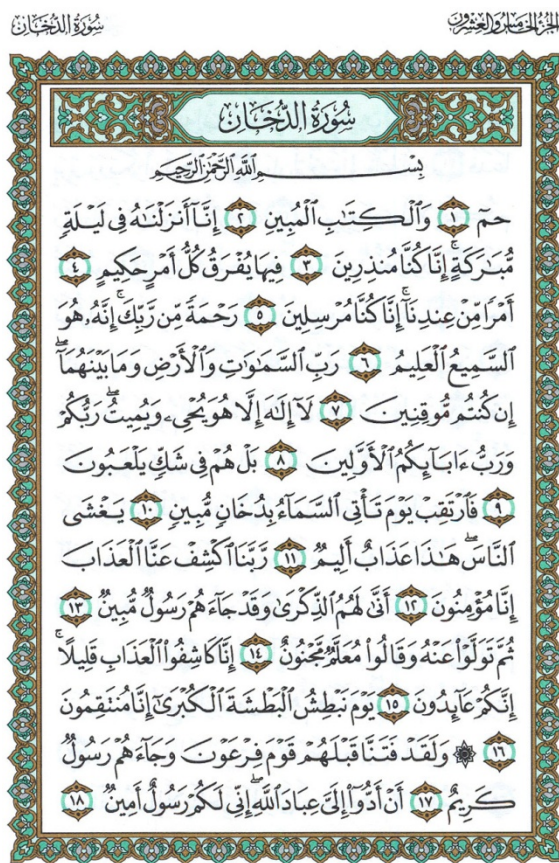 الجزء الخامس والعشرون
سُورَةُ الدُّخَانِ
سُورَةُ الدُّخَانِ
بِسْمِ اللَّهِ الرَّحْمَٰنِ الرَّحِيمِ
حمٓ ١ وَٱلْكِتَٰبِ ٱلْمُبِينِ ٢ إِنَّآ أَنزَلْنَٰهُ فِى لَيْلَةٍ
مُّبَٰرَكَةٍ ۚ إِنَّا كُنَّا مُنذِرِينَ ٣ فِيهَا يُفْرَقُ كُلُّ أَمْرٍ حَكِيمٍ ٤
أَمْرًا مِّنْ عِندِنَآ ۚ إِنَّا كُنَّا مُرْسِلِينَ ٥ رَحْمَةً مِّن رَّبِّكَ ۚ إِنَّهُۥ هُوَ
ٱلسَّمِيعُ ٱلْعَلِيمُ ٦ رَبِّ ٱلسَّمَٰوَٰتِ وَٱلْأَرْضِ وَمَا بَيْنَهُمَآ ۖ
إِن كُنتُم مُّوقِنِينَ ٧ لَآ إِلَٰهَ إِلَّا هُوَ يُحْىِۦ وَيُمِيتُ ۖ رَبُّكُمْ
وَرَبُّ ءَابَآئِكُمُ ٱلْأَوَّلِينَ ٨ بَلْ هُمْ فِى شَكٍّ يَلْعَبُونَ
٩ فَٱرْتَقِبْ يَوْمَ تَأْتِى ٱلسَّمَآءُ بِدُخَانٍ مُّبِينٍ ١٠ يَغْشَى
ٱلنَّاسَ ۖ هَٰذَا عَذَابٌ أَلِيمٌ ١١ رَّبَّنَا ٱكْشِفْ عَنَّا ٱلْعَذَابَ
إِنَّا مُؤْمِنُونَ ١٢ أَنَّىٰ لَهُمُ ٱلذِّكْرَىٰ وَقَدْ جَآءَهُمْ رَسُولٌ مُّبِينٌ ١٣
ثُمَّ تَوَلَّوْا۟ عَنْهُ وَقَالُوا۟ مُعَلَّمٌ مَّجْنُونٌ ١٤ إِنَّا كَاشِفُوا۟ ٱلْعَذَابِ قَلِيلًا ۚ
إِنَّكُمْ عَآئِدُونَ ١٥ يَوْمَ نَبْطِشُ ٱلْبَطْشَةَ ٱلْكُبْرَىٰٓ إِنَّا مُنتَقِمُونَ
١٦ ۞ وَلَقَدْ فَتَنَّا قَبْلَهُمْ قَوْمَ فِرْعَوْنَ وَجَآءَهُمْ رَسُولٌ
كَرِيمٌ ١٧ أَنْ أَدُّوٓا۟ إِلَىَّ عِبَادَ ٱللَّهِ ۖ إِنِّى لَكُمْ رَسُولٌ أَمِينٌ ١٨